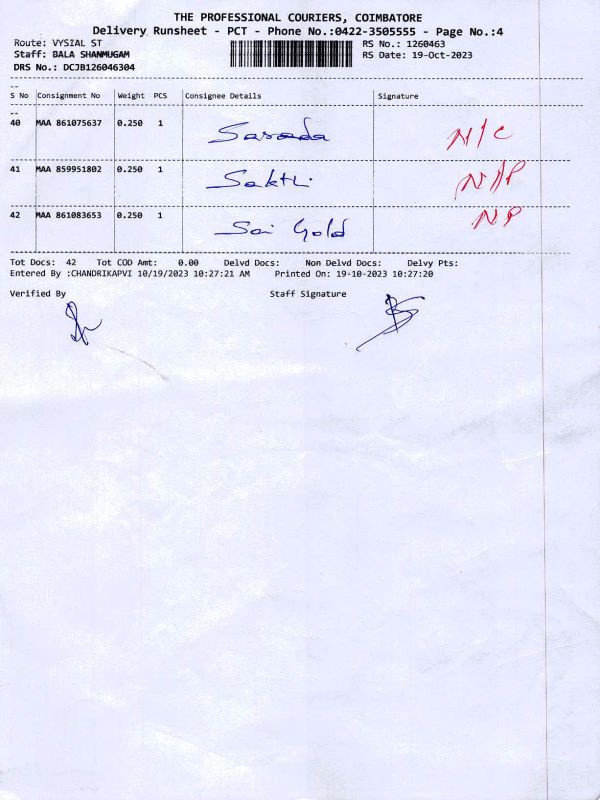 THE PROFESSIONAL COURIERS, COIMBATORE
Delivery Runsheet - PCT - Phone No.:0422-3505555 - Page No.:4
Route: VYSIAL ST RS No.: 1260463
Staff: BALA SHANMUGAM RS Date: 19-Oct-2023
DRS No.: DCJB126046304
--
S No Consignment No Weight PCS Consignee Details Signature
--
40 MAA 861075637 0.250 1 Sarada N/C
41 MAA 859951802 0.250 1 Sakthi N/P
42 MAA 861083653 0.250 1 Sai Gold NP
Tot Docs: 42 Tot COD Amt: 0.00 Delvd Docs: Non Delvd Docs: Delvy Pts:
Entered By :CHANDRIKAPVI 10/19/2023 10:27:21 AM Printed On: 19-10-2023 10:27:20
Verified By Staff Signature